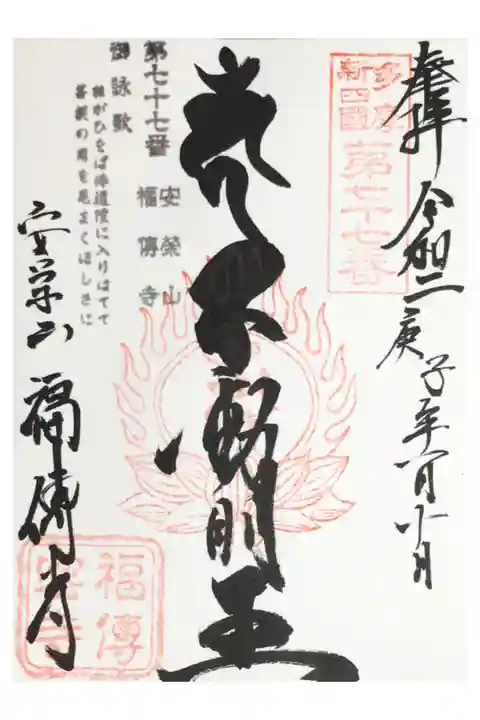 奉拝 令和二庚子年
多摩
新四國
第七十七番
不動明王
第七十七番 安榮山
福傳寺
御詠歌
ねがひをば佛道隆に入りはてて
菩提の月を見まくほしさに
安栄山 福傳寺
福傳
密寺